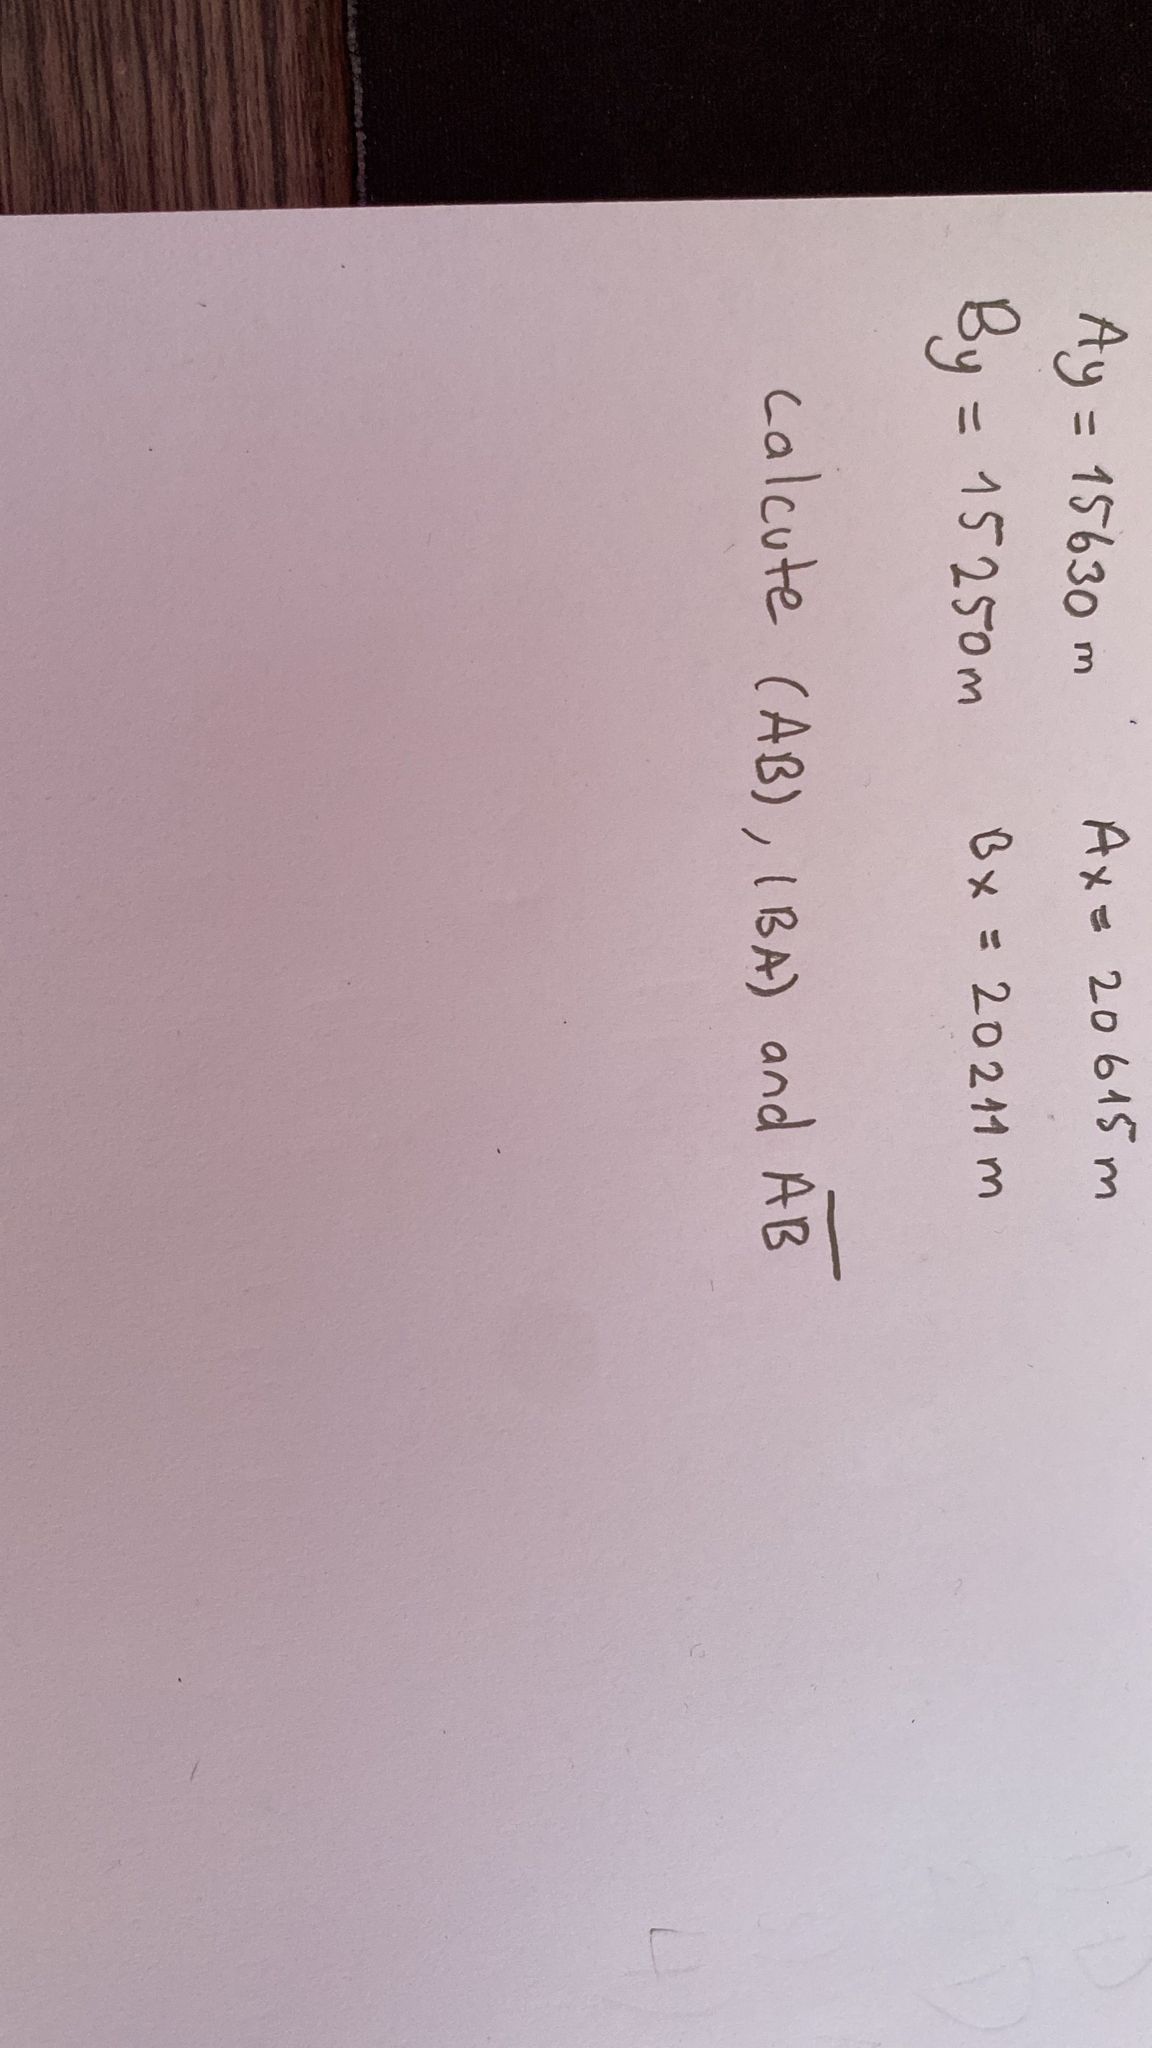 Ay = 15630 m Ax = 20615 m
By = 15250m Bx = 20211 m
Calcute (AB), (BA) and AB